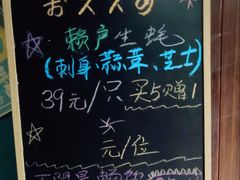 おススめ
赖户生蚝
(刺身、蒜蓉、芝士)
39元/只 买5赠1
元/位